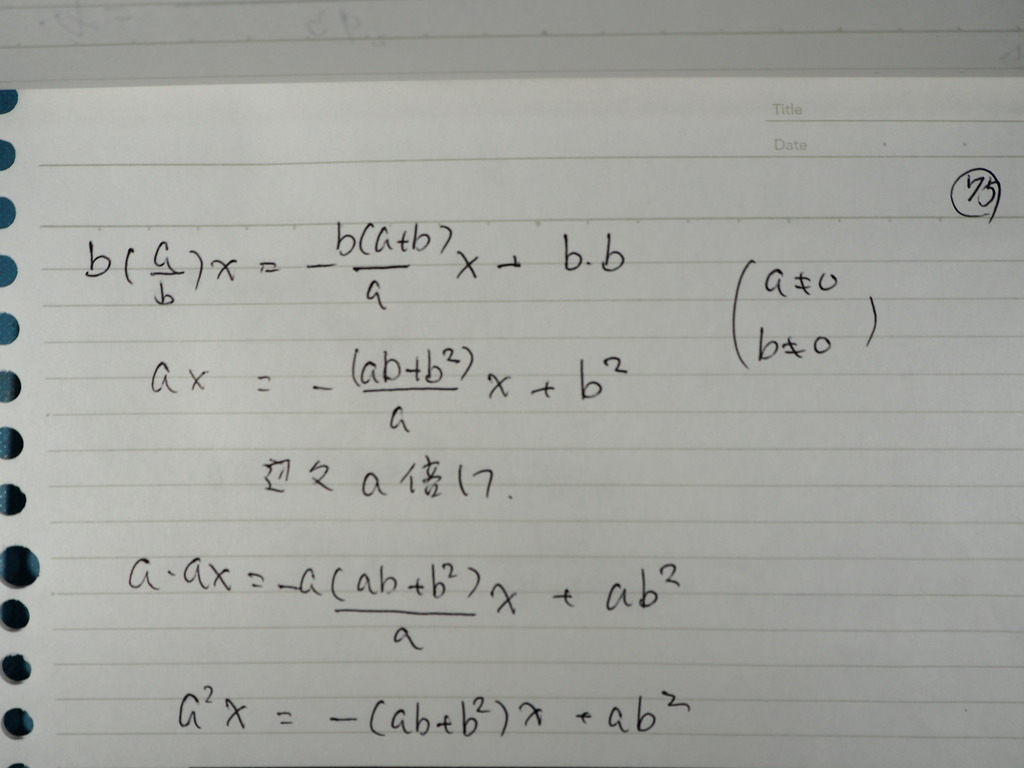 Title
Date
75
b(a/b)x = -b(a+b)/a x + b·b
(a≠0
b≠0)
ax = -(ab+b²)/a x + b²
辺々a倍して.
a·ax = -a(ab+b²)/a x + ab²
a²x = -(ab+b²)x + ab²